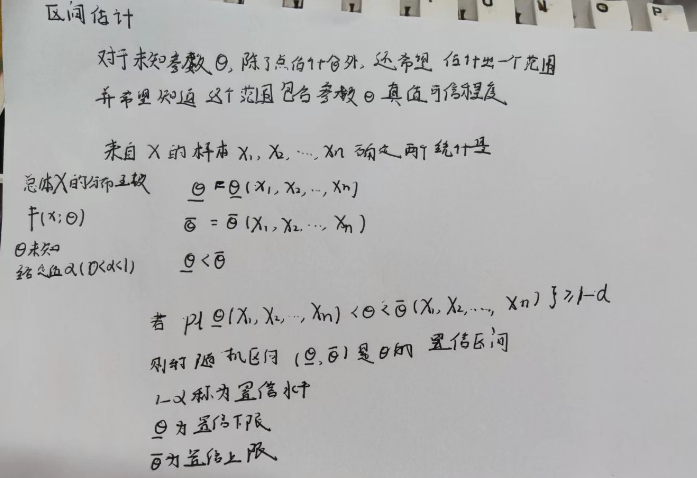 区间估计
对于未知参数θ,除了点估计θ̂外,还希望 估计出一个范围
并希望知道 这个范围包含参数θ真值可信程度
来自X的样本X₁, X₂, …, Xn 确定两个统计量
总体X的分布函数
F(x;θ)
θ未知
给定值α(0<α<1)
θ̲ = θ̲(X₁, X₂, …, Xn)
θ̄ = θ̄(X₁, X₂, …, Xn)
θ̲<θ̄
若 P{θ̲(X₁, X₂, …, Xn)<θ<θ̄(X₁, X₂, …, Xn)}≥1-α
则称随机区间(θ̲,θ̄)是θ的 置信区间
1-α称为置信水平
θ̲为置信下限
θ̄为置信上限